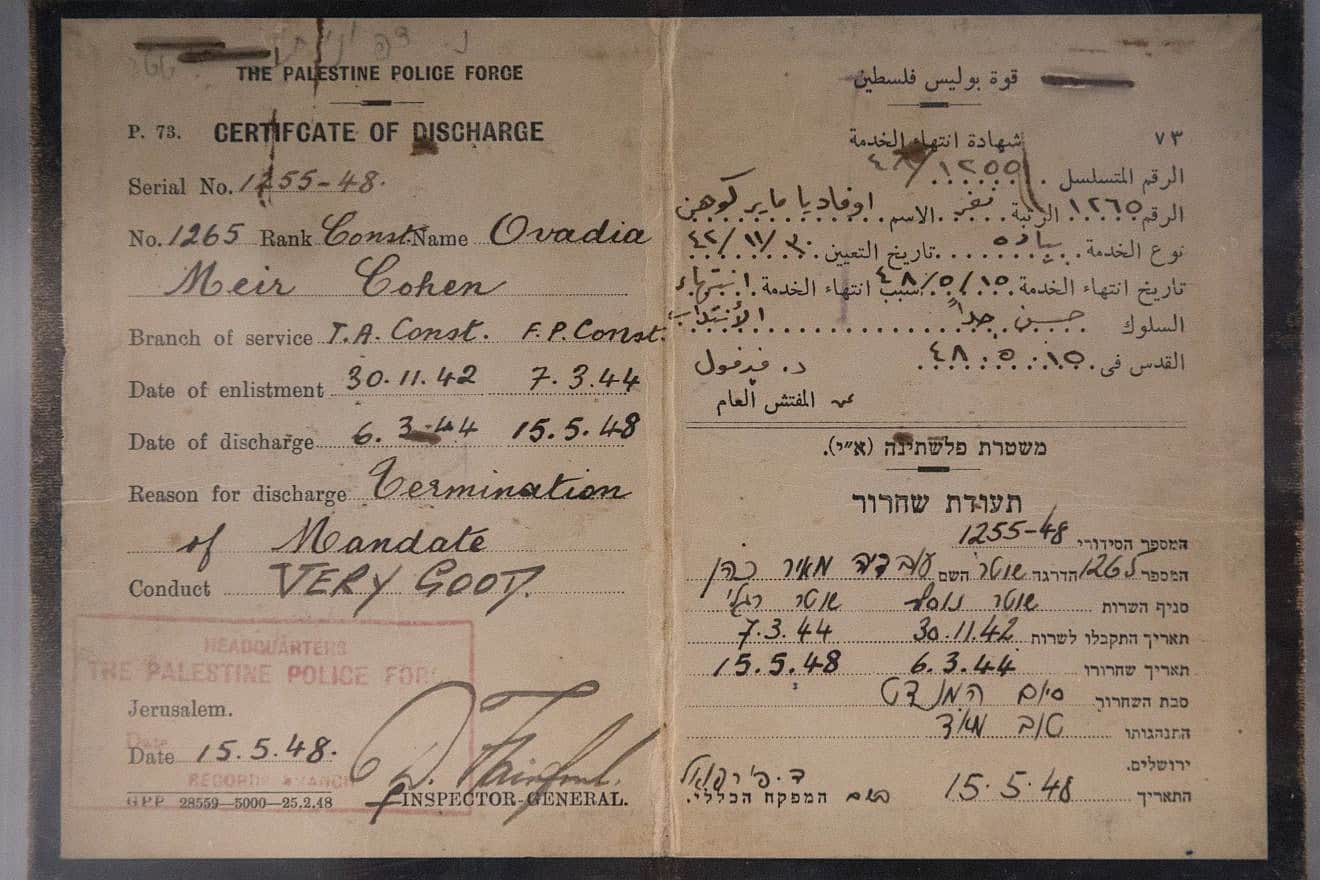 THE PALESTINE POLICE FORCE
P. 73. CERTIFCATE OF DISCHARGE
Serial No. 1255-48.
No. 1265 Rank Const. Name Ovadia
Meir Cohen
Branch of service T.A. Const. F.P. Const.
Date of enlistment 30.11.42 7.3.44
Date of discharge 6.3.44 15.5.48
Reason for discharge Termination
of Mandate
Conduct VERY GOOD.
HEADQUARTERS
THE PALESTINE POLICE FORC
Jerusalem.
Date
Date 15.5.48.
RECORDS BRANCH
GPP 28559—5000—25.2.48
INSPECTOR-GENERAL.
قوة بوليس فلسطين
٧٣ شهادة انتهاء الخدمة
الرقم المتسلسل ١٢٥٥/٤٨
الرقم ١٢٦٥ الرتبة نفر الاسم اوفاديا ماير كوهن
نوع الخدمة بياده تاريخ التعيين ٣٠/١١/٤٢
تاريخ انتهاء الخدمة ١٥/٥/٤٨ سبب انتهاء الخدمة انتهاء
الأنتداب
السلوك حسن جداً
القدس فى ١٥.٥.٤٨
عن المفتش العام
משטרת פלשתינה (א״י).
תעודת שחרור
המספר הסידורי 1255-48
המספר 1265 הדרגה שוטר השם עובדיה מאיר כהן
סניף השרות שוטר נוסף שוטר רגלי
תאריך התקבלו לשרות 30.11.42 7.3.44
תאריך שחרורו 6.3.44 15.5.48
סבת השחרור סיום המנדט
התנהגותו טוב מאד
ירושלים.
התאריך 15.5.48
בשם המפקח הכללי.